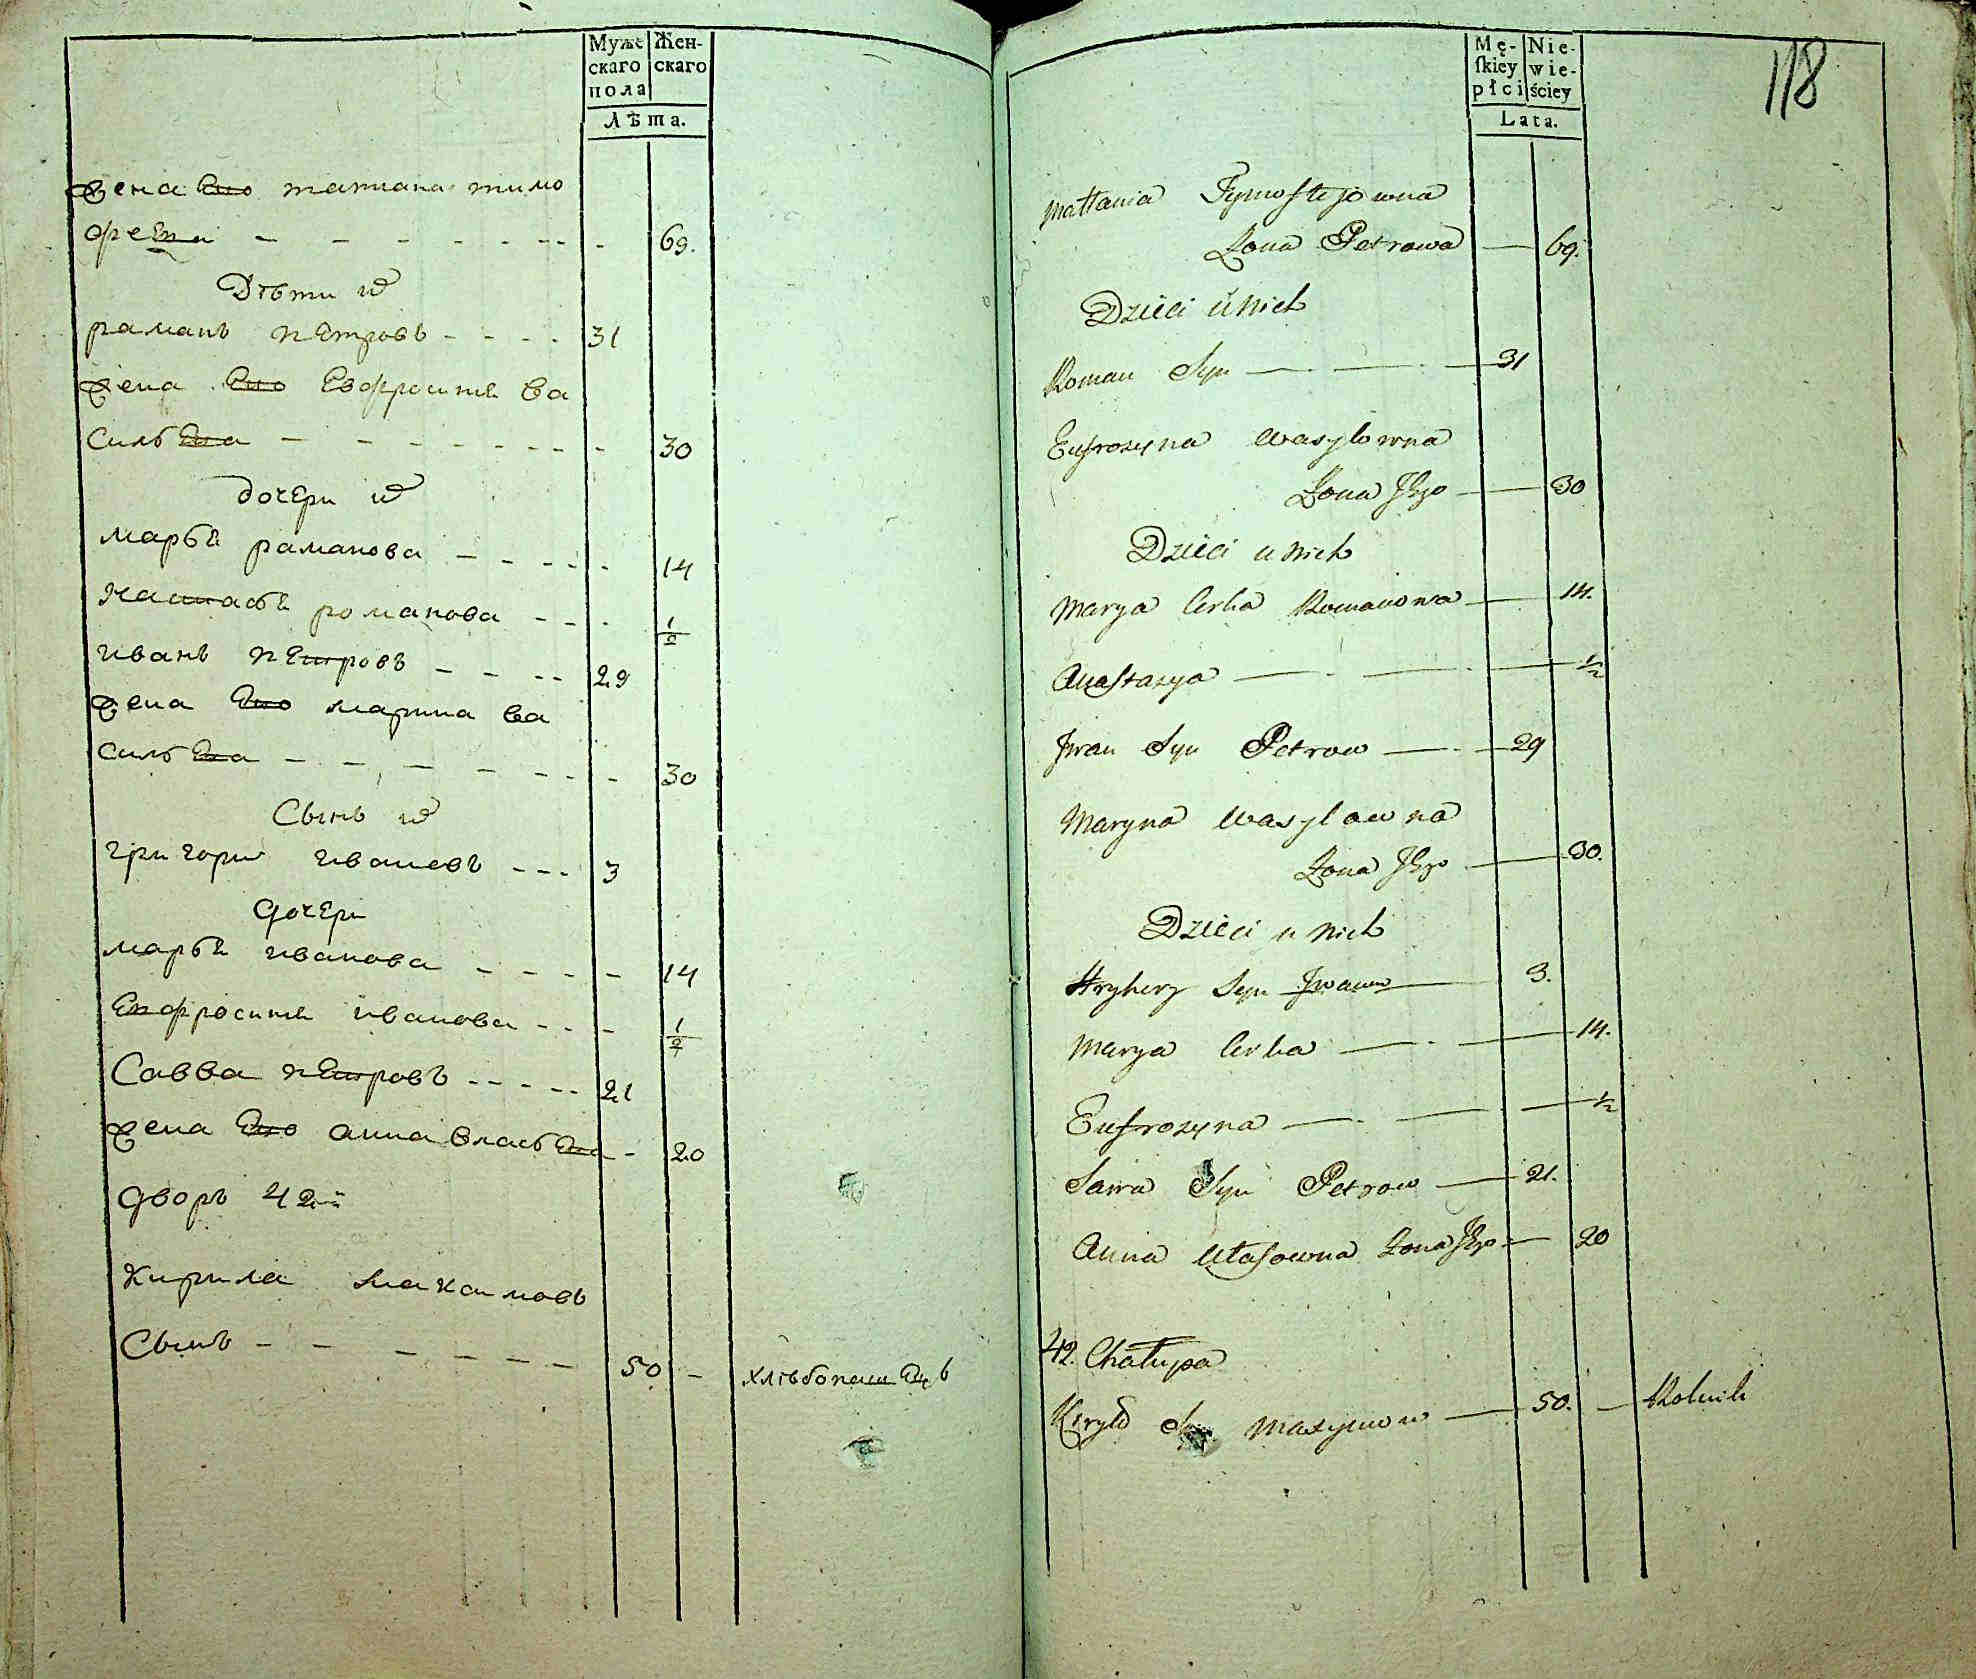 Муже
скаго
пола
Жен-
скаго
Лѣта.
жена Его татиана тимо
феева - - - - - - - - 69.
Дѣти их
раманъ петровъ - - - - 31
жена Его Евфросиня ва
сильева - - - - - - - - 30
дочери их
марья раманова - - - - - 14
настасья романова - - - 1/2
иванъ петровъ - - - - 29
жена Его марина ва
сильева - - - - - - - 30
Сынъ их
григори ивановъ - - - 3
дочери
марья иванова - - - - - 14
Ефросиня иванова - - - 1/2
Савва петровъ - - - - - 21
жена Его анна власьева - 20
дворъ 42й
Кирила Макsимовъ
Сынъ - - - - - - 50 - хлѣбопашецъ
Mę-
ſkiey
płci
Nie-
wie-
ściey
Lata.
118
Mattania Tymofiejowna
Żona Petrowa — 69.
Dzieci u Nich
Roman Syn — — — 31
Eufrozyna Wasylowna
Żona Jego — 30
Dzieci u Nich
Marya Corka Romanowa — 14.
Anastazya — — — 1/2
Jwan Syn Petrow — — 29
Maryna Wasylowna
Żona Jego — 30.
Dzieci u Nich
Hryhory Syn Jwanow — 3.
Marya Corka — — 14.
Eufrozyna — — — 1/2
Sawa Syn Petrow — 21.
Anna Własowna Żona Jego — 20
42. Chałupa
Kiryło Syn Maxymow — 50. — Rolnik